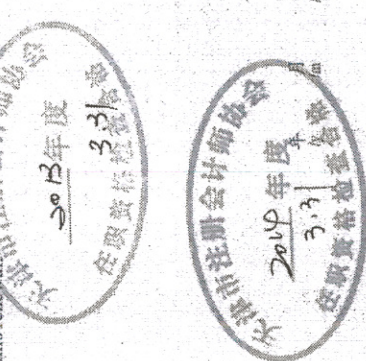 天津市注册会计师协会
2013年度
3.31
任职资格检查合格
天津市注册会计师协会
2014年度
3.31
任职资格检查合格
年 月